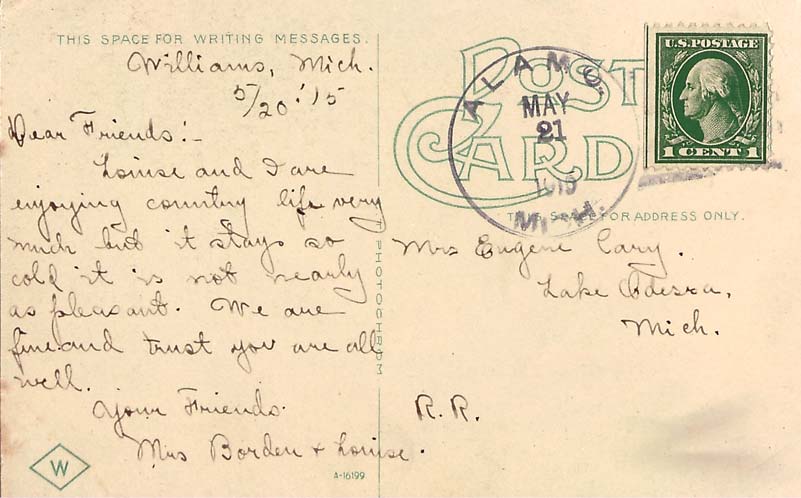 THIS SPACE FOR WRITING MESSAGES.
Williams, Mich.
5/20.'15
Dear Friends:-
Louise and I are
enjoying country life very
much but it stays so
cold it is not nearly
as pleasant. We are
fine and trust you are all
well.
Your Friends.
Mrs Borden & Louise.
W
A-16199
PHOTOCHROM
POST
CARD
ALAMO.
MAY
21
MICH.
U.S. POSTAGE
1 CENT 1
THIS SPACE FOR ADDRESS ONLY.
Mrs Eugene Cary.
Lake Odessa,
Mich.
R.R.